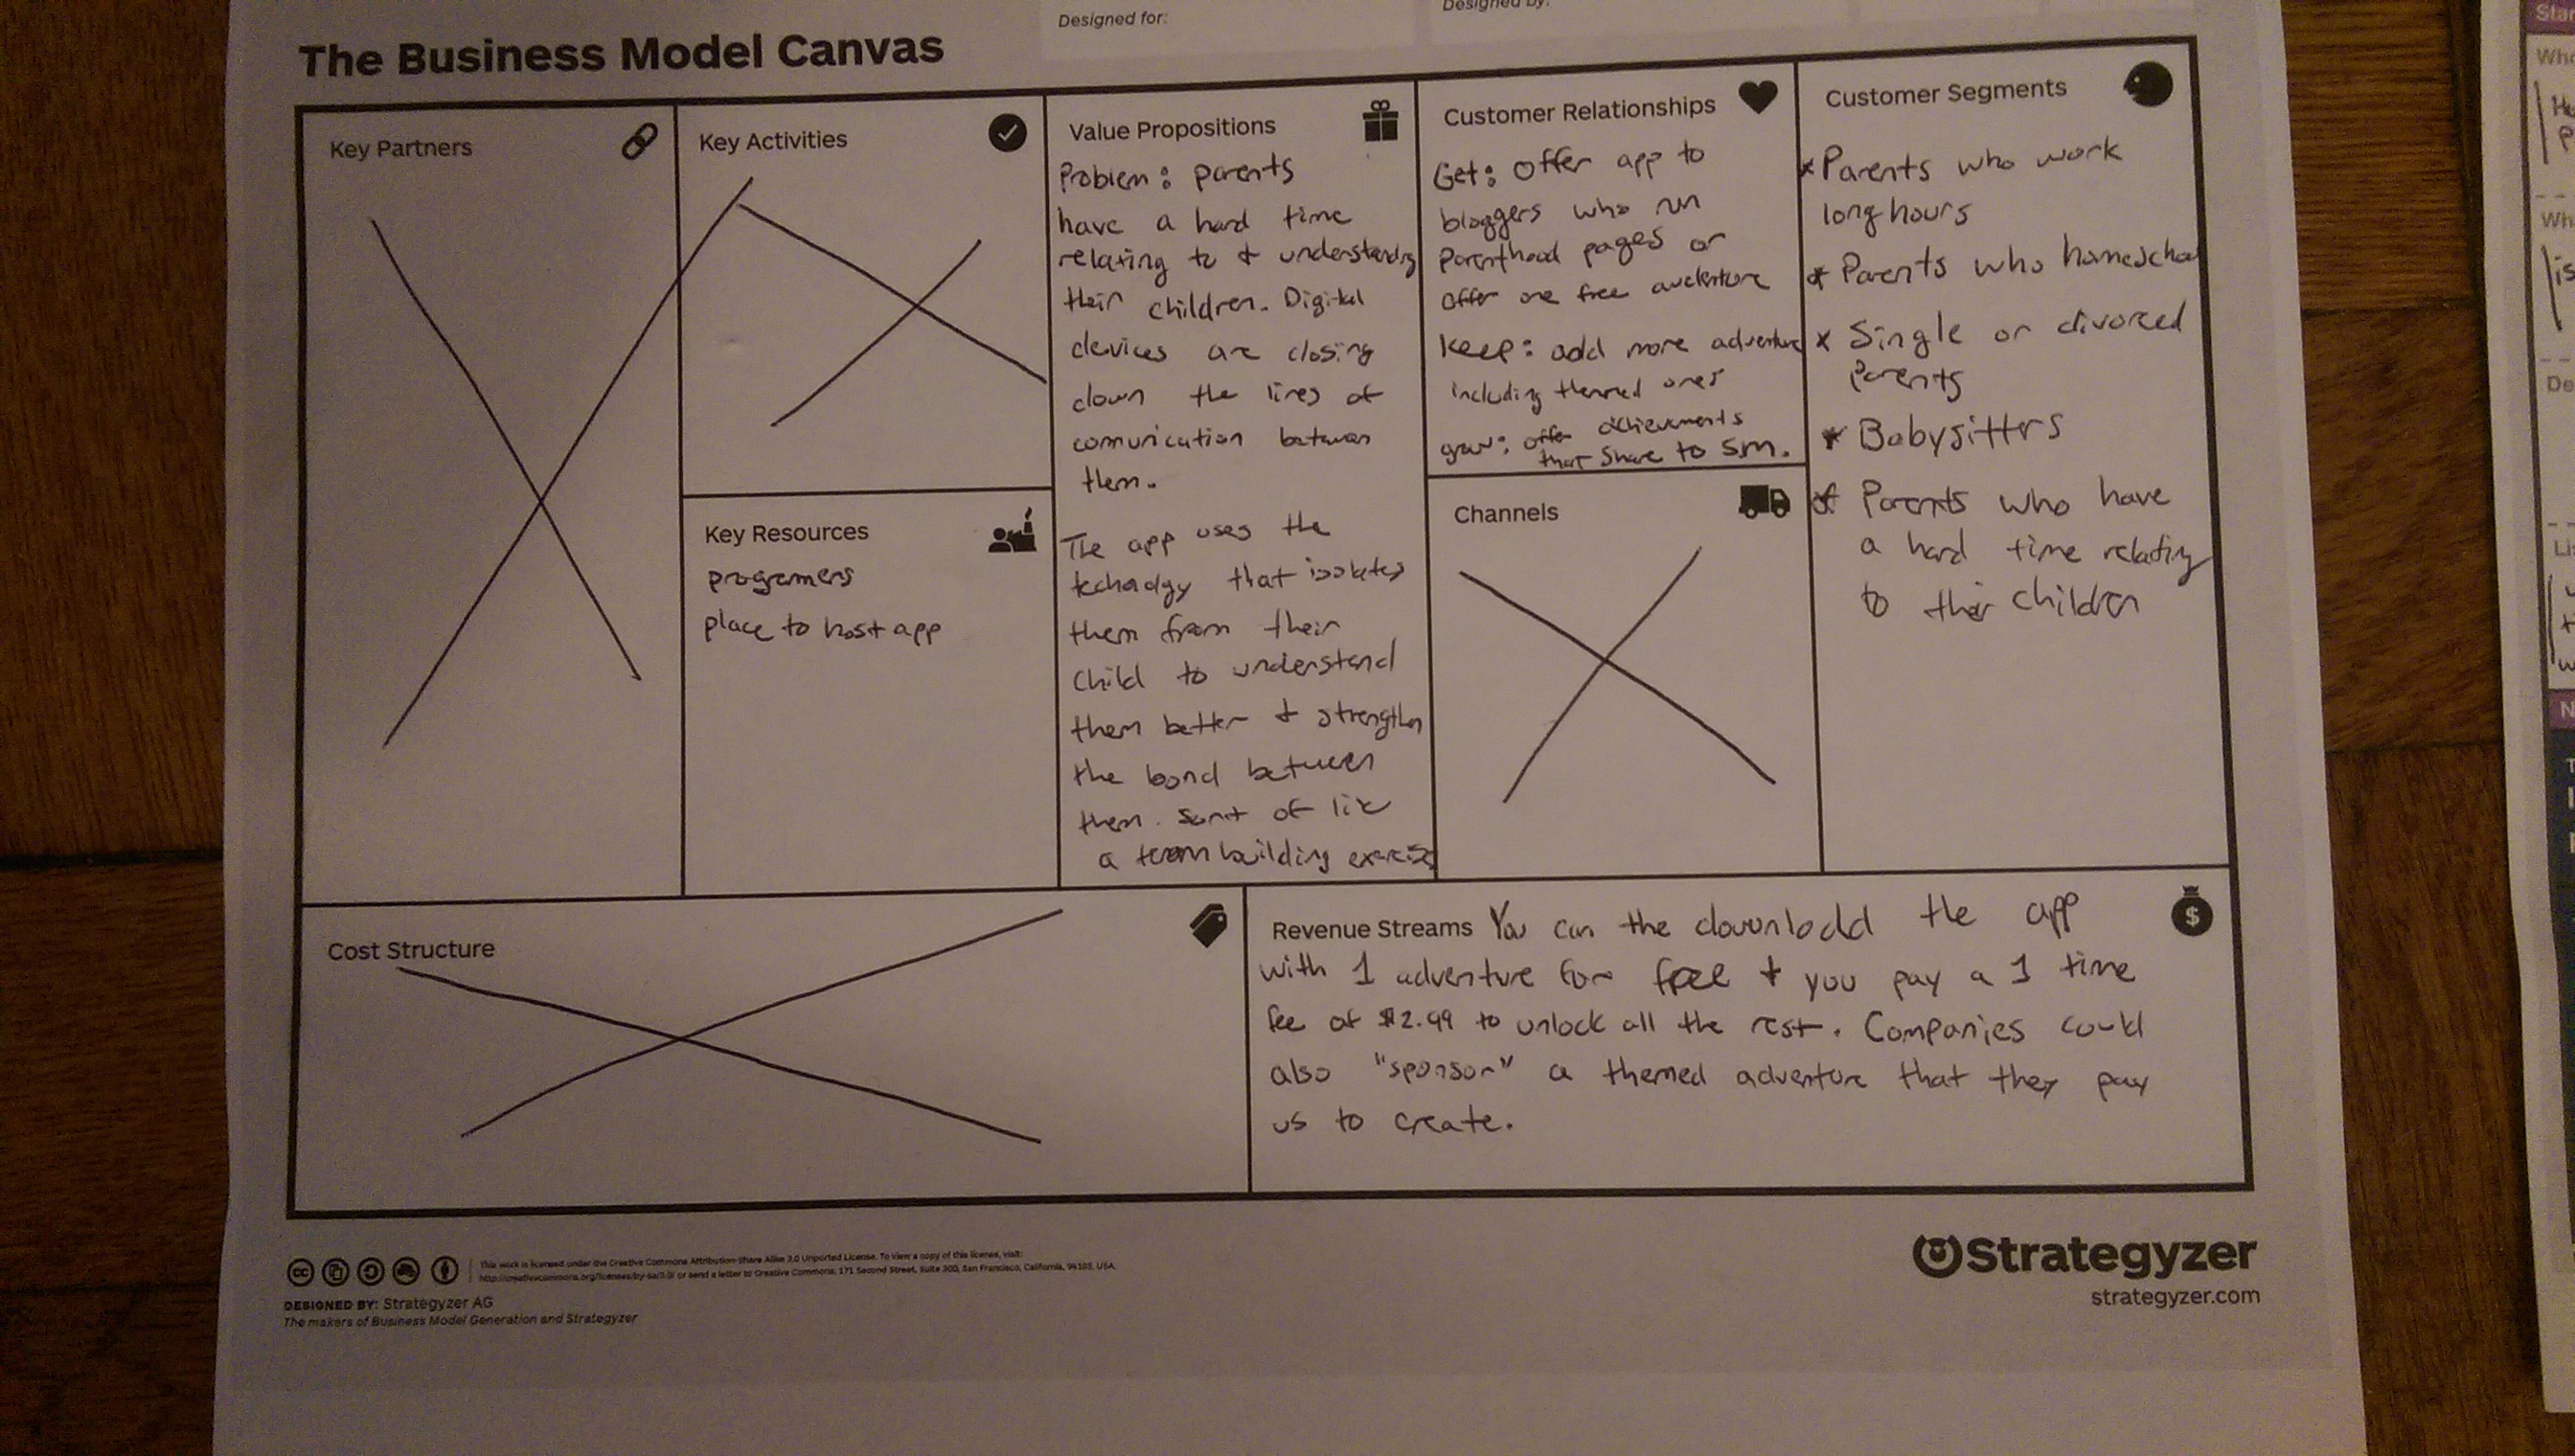 Designed for:
Designed by:
The Business Model Canvas
Key Partners
Key Activities
Key Resources
programers
place to host app
Value Propositions
Problem: parents
have a hard time
relating to & understanding
their children. Digital
devices are closing
down the lines of
comunication between
them.
The app uses the
that isolates
them from their
child to understand
them better & strengthen
the bond between
them. Sort of like
a team building exercise
Customer Relationships
Get: Offer app to
bloggers who run
Parenthood pages or
offer one free adventure
Keep: add more adventure
including themed ones
grow: offer achievements
that share to sm.
Channels
Customer Segments
* Parents who work
long hours
* Parents who homeschool
* Single or divorced
parents
* Babysitters
* Parents who have
a hard time relating
to their children
Cost Structure
Revenue Streams You can the download the app
with 1 adventure for free & you pay a 1 time
fee of $2.99 to unlock all the rest. Companies could
also "sponsor" a themed adventure that they pay
us to create.
This work is licensed under the Creative Commons Attribution-Share Alike 3.0 Unported License. To view a copy of this license, visit:
http://creativecommons.org/licenses/by-sa/3.0/ or send a letter to Creative Commons, 171 Second Street, Suite 300, San Francisco, California, 94105, USA.
DESIGNED BY: Strategyzer AG
The makers of Business Model Generation and Strategyzer
Strategyzer
strategyzer.com